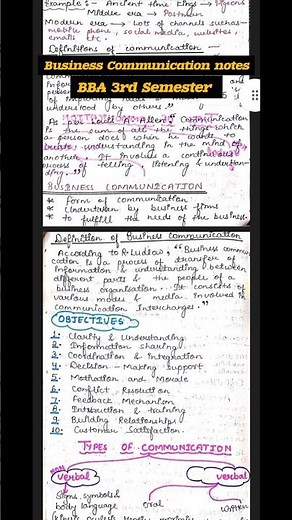 Example :- Ancient time Kings → Pigeons
Middle era → Postman
Modern era → Lots of channels such as-
mobile phone, social media, websites,
emails etc.
Definitions of communication -
Business Communication notes
BBA 3rd Semester
understood by others."
As per Louis A. Allen "Communication
is the sum of all the things which
a person does when he wants to
create understanding in the mind of
another. It involves a continuous
process of telling, listening & understan-
ding."
BUSINESS COMMUNICATION
* Form of communication
* Undertaken by business firms
* to fulfill the needs of the business.
Definition of Business Communication
According to R. Ludlow, "Business commun-
cation is a process of transfer of
information & understanding between
different parts & the people of a
business organisation. It consists of
various modes & media involved in
communication Interchanges."
OBJECTIVES
1. Clarity & Understanding
2. Information sharing
3. Coordination & Integration
4. Decision-Making Support
5. Motivation and Morale
6. Conflict Resolution
7. Feedback Mechanism
8. Instruction & training
9. Building Relationships
10. Customer Satisfaction.
TYPES OF COMMUNICATION
Non verbal
verbal
Signs, symbols &
body language
oral
written